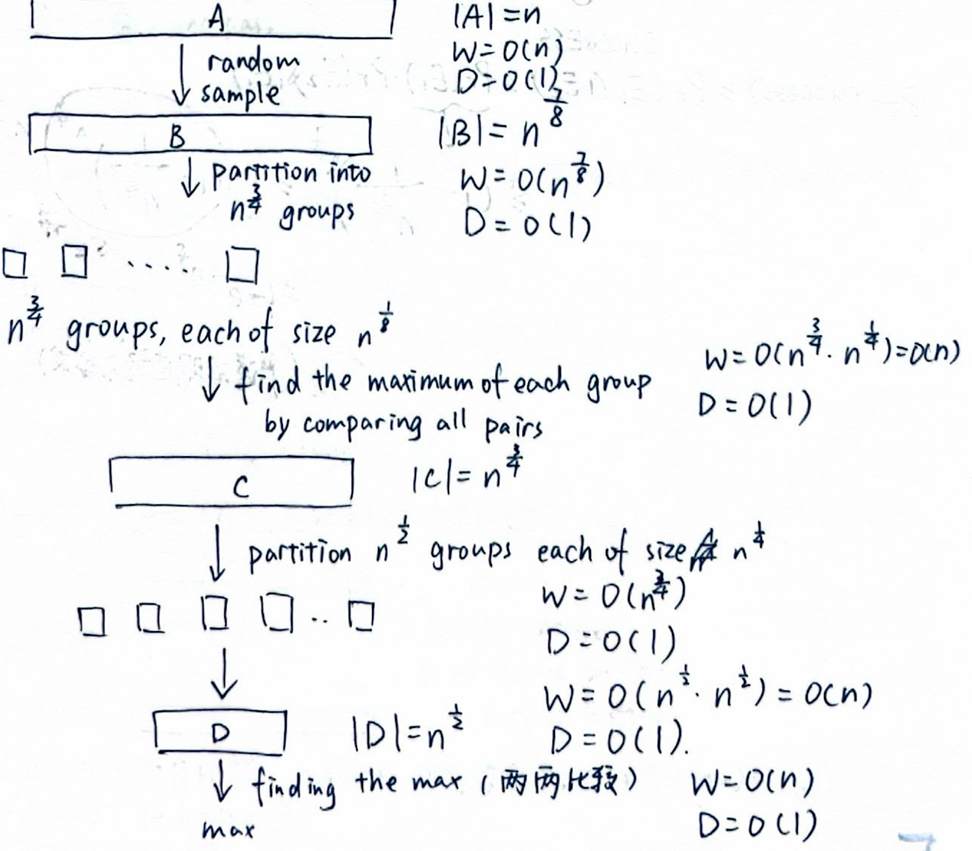 A |A| = n
W = O(n)
random D = O(1)
sample
B |B| = n^{7/8}
partition into W = O(n^{7/8})
n^{3/4} groups D = O(1)
....
n^{3/4} groups, each of size n^{1/8}
find the maximum of each group W = O(n^{3/4} · n^{1/4}) = O(n)
by comparing all pairs D = O(1)
C |C| = n^{3/4}
partition n^{1/2} groups each of size n^{1/4}
W = O(n^{3/4})
.. D = O(1)
W = O(n^{1/2} · n^{1/2}) = O(n)
D |D| = n^{1/2} D = O(1).
finding the max (两两比较) W = O(n)
max D = O(1)